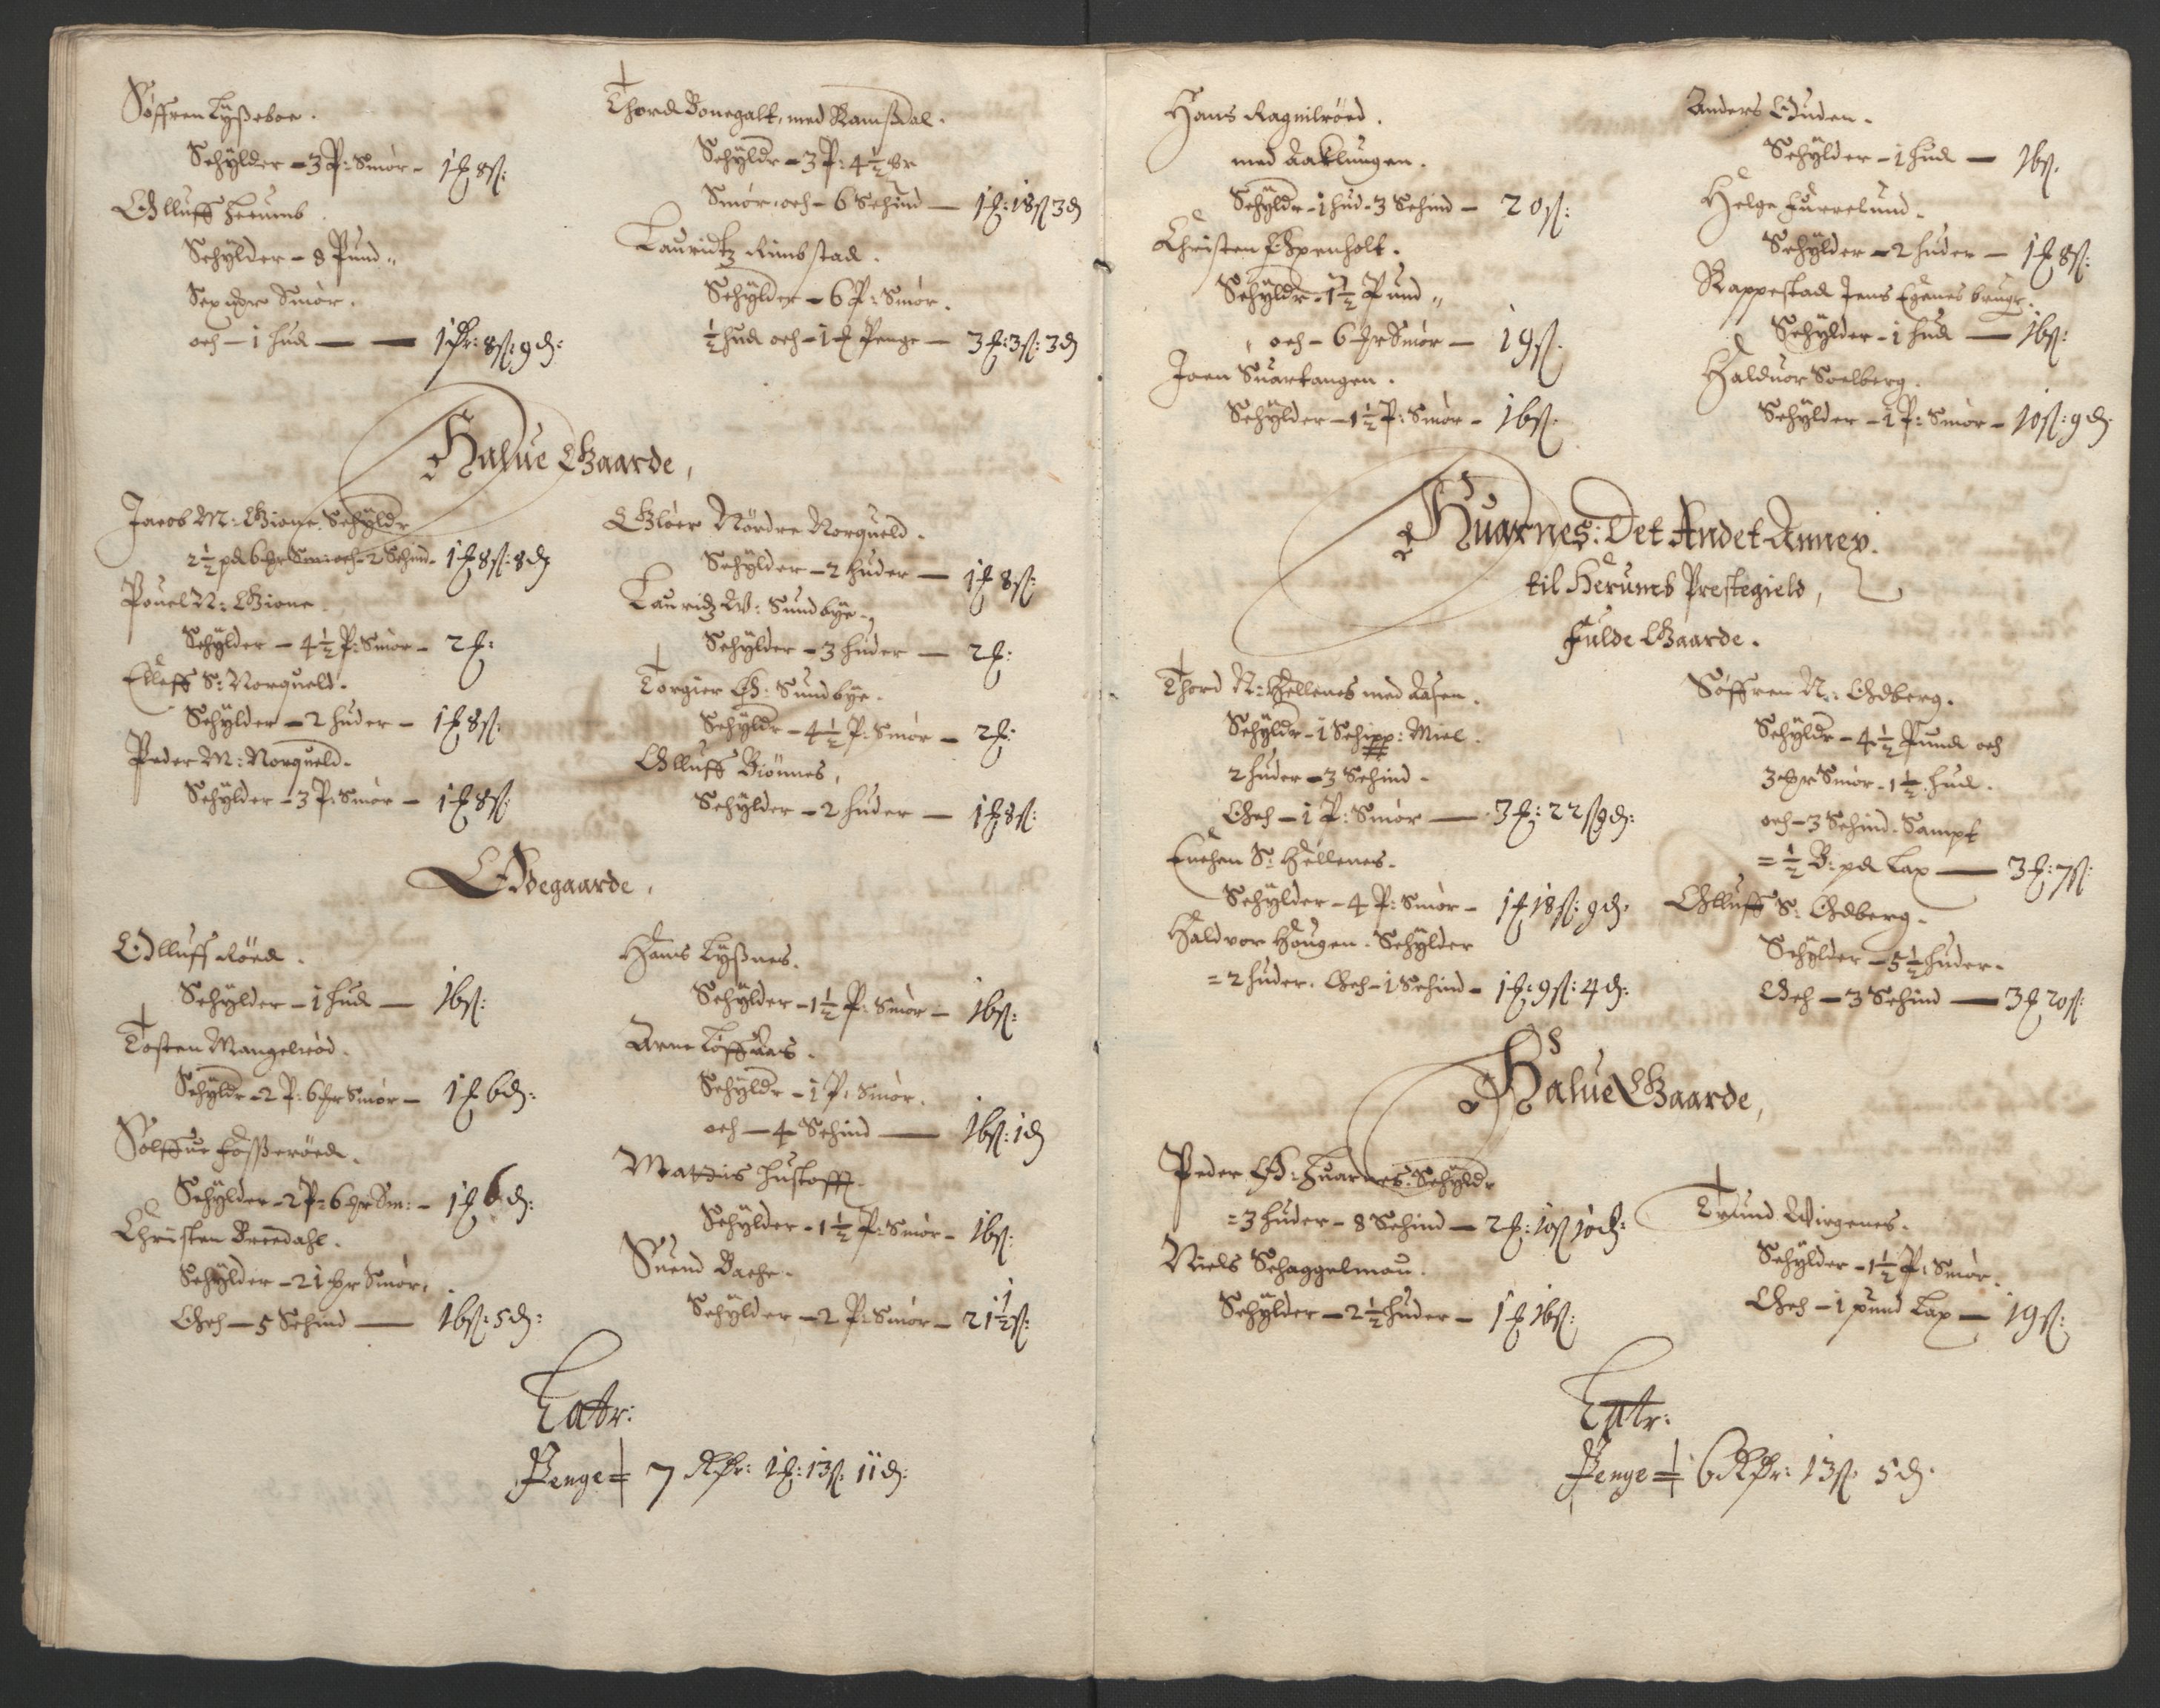 Søffren Lyßeboe.
Schylder – 3 P: Smør – 1 ₰ 8 ß:
Olluff
Schylder – 8 Pund
Sex Smør.
och – 1 hud – 8 ß: 9 d:
Thord Bonegalt, med Ramßdal.
Schyldr – 3 P: 4½
Smør och – 6 Schind – 18 ß 3 d
Lauridtz Rimbstad.
Schylder – 6 P: Smør.
½ hud och – 1 Penge – 3 3 ß: 3 d
Halue Gaarde,
Jacob M: Gione. Schyldr
2½ pd 6 Sm: och – 2 Schind – 8 ß: 8 d
Pouel N: Gione.
Schylder – 4½ P: Smør – 2
Elleff S: Norqueld.
Schylder – 2 huder – 8 ß:
Peder M: Norqueld.
Schylder – 3 P: Smør – 8 ß:
Gloer Nordre Norqueld.
Schylder – 2 huder – 8 ß:
Lauridz W: Sundbye.
Schylder – 3 huder – 2
Torgier Ø: Sundbye.
Schyldr – 4½ P: Smør – 2
Olluff Biønnes,
Schylder – 2 huder – 8 ß:
Ødegaarde,
Olluff Røed.
Schylder – 1 hud – 16 ß:
Tosten Mangelrød.
Schyldr – 2 P: 6 Smør – 6 d:
Solffue Foßerøed.
Schylder – 2 P: 6 Sm: – 6 d:
Christen Breedahl.
Schylder – 21 Smør,
Och – 5 Schind – 16 ß: 5 d:
Hans Lyßnes.
Schylder – 1½ P: Smør – 16 ß:
Arne Løffaas.
Schyldr – 1 P: Smør.
och – 4 Schind – 16 ß: 1 d
Mattis Hustofft.
Schylder – 1½ P: Smør – 16 ß:
Suend Bache.
Schylder – 2 P: Smør – 21½ ß:
Latr:
Penge = 7 13 ß: 11 d:
Hans Ragnilrøed.
med Aaklungen.
Schyldr – 1 hud – 3 Schind – 20 ß:
Christen Espenholt.
Schyldr – 1½ Pund
och – 6 Smør – 19 ß.
Joen Suartangen.
Schylder – 1½ P: Smør – 16 ß.
Anders Guden.
Schylder – 1 hud – 16 ß.
Helge Furrelund.
Schylder – 2 huder – 8 ß:
Rappestad Jens Egenes brugr.
Schylder – 1 hud – 16 ß:
Halduor Soelberg.
Schylder – 1 P: Smør – 10 ß: 9 d.
Huarnes: Det Andet Annex.
til Herumb Prestegield,
Fulde Gaarde.
Thord N: Hellenes med Aasen.
Schyldr – 1 Schipp: Miel.
2 huder – 3 Schind –
Och – 1 P: Smør – 3 22 ß 9 d:
Enchen S: Hellenes.
Schylder – 4 P: Smør – 18 ß: 9 d.
Haldvor Hougen. Schylder
= 2 huder. Och – 1 Schind – 9 ß: 4 d:
Søffren N: Ødberg.
Schyldr – 4½ Pund och
3 Smør – 1½ hud.
och – 3 Schind. Sampt
= ½ B: pd Lax – 3 7 ß:
Olluff S: Ødberg.
Schylder – 5½ huder.
Och – 3 Schind – 3 20 ß:
Halue Gaarde,
Peder Ø: Huarnes. Schyldr
= 3 huder – 8 Schind – 2 10 ß 10 d:
Niels Schaggelmou.
Schylder – 2½ huder – 16 ß:
Trund Wirgenes.
Schylder – 1½ P: Smør.
Och – 1 pund Lax – 19 ß:
Latr:
Penge = 6 13 ß. 5 d.